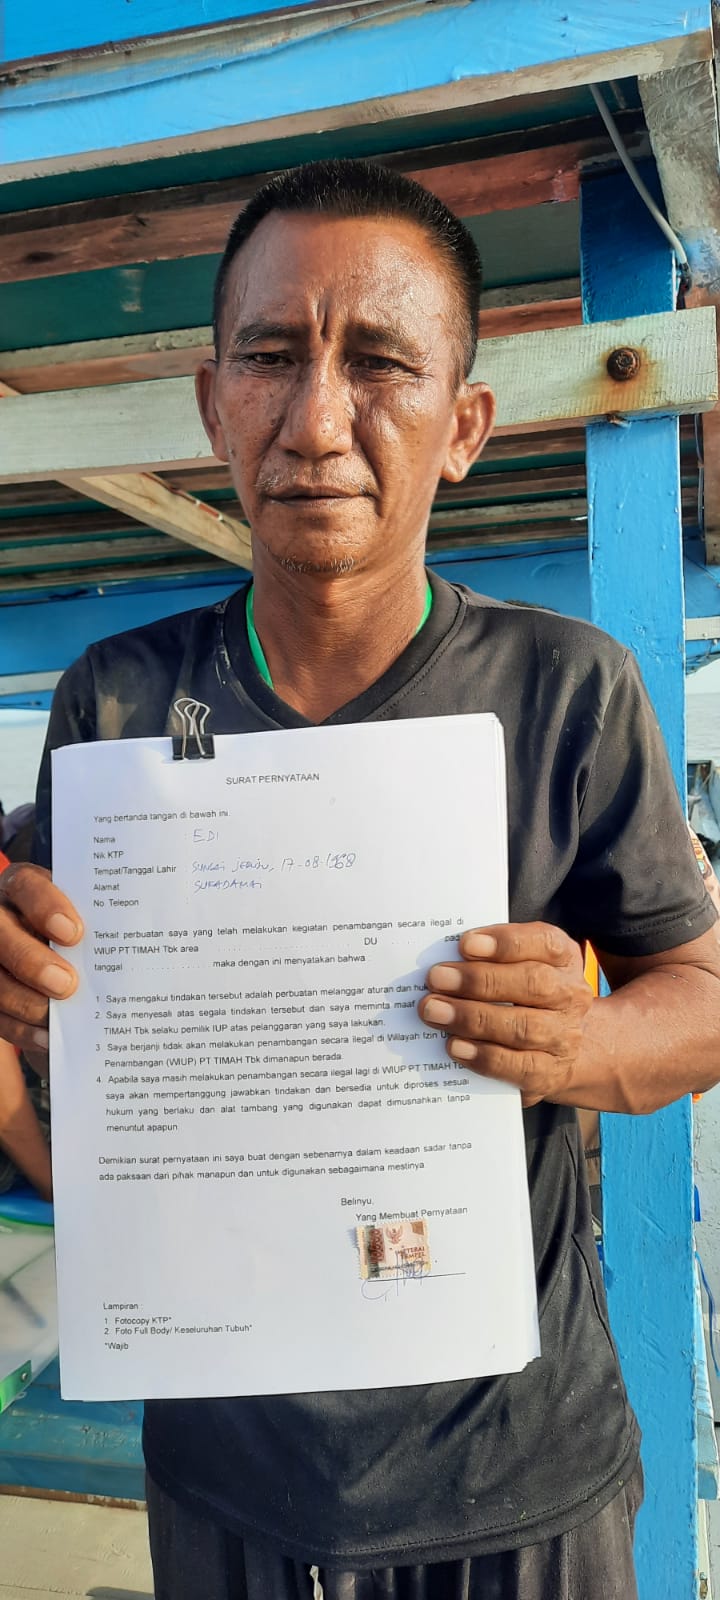 SURAT PERNYATAAN
Yang bertanda tangan di bawah ini.
Nama : EDI
Nik KTP
Tempat/Tanggal Lahir : SUNGAI JERUJU, 17-08-1968
Alamat : SUKADAMAI
No. Telepon :
Terkait perbuatan saya yang telah melakukan kegiatan penambangan secara ilegal di
WIUP PT TIMAH Tbk area ........................ DU .......... pada
tanggal ................ maka dengan ini menyatakan bahwa
1 Saya mengakui tindakan tersebut adalah perbuatan melanggar aturan dan
2. Saya menyesali atas segala tindakan tersebut dan saya meminta maaf
TIMAH Tbk selaku pemilik IUP atas pelanggaran yang saya lakukan.
3 Saya berjanji tidak akan melakukan penambangan secara ilegal di Wilayah Izin
Penambangan (WIUP) PT TIMAH Tbk dimanapun berada.
4. Apabila saya masih melakukan penambangan secara ilegal lagi di WIUP PT TIMAH
saya akan mempertanggung jawabkan tindakan dan bersedia untuk diproses sesuai
hukum yang berlaku dan alat tambang yang digunakan dapat dimusnahkan tanpa
menuntut apapun.
Demikian surat pernyataan ini saya buat dengan sebenarnya dalam keadaan sadar tanpa
ada paksaan dari pihak manapun dan untuk digunakan sebagaimana mestinya
Belinyu,
Yang Membuat Pernyataan
METERAI
TEMPEL
Lampiran :
1. Fotocopy KTP*
2. Foto Full Body/ Keseluruhan Tubuh*
*Wajib